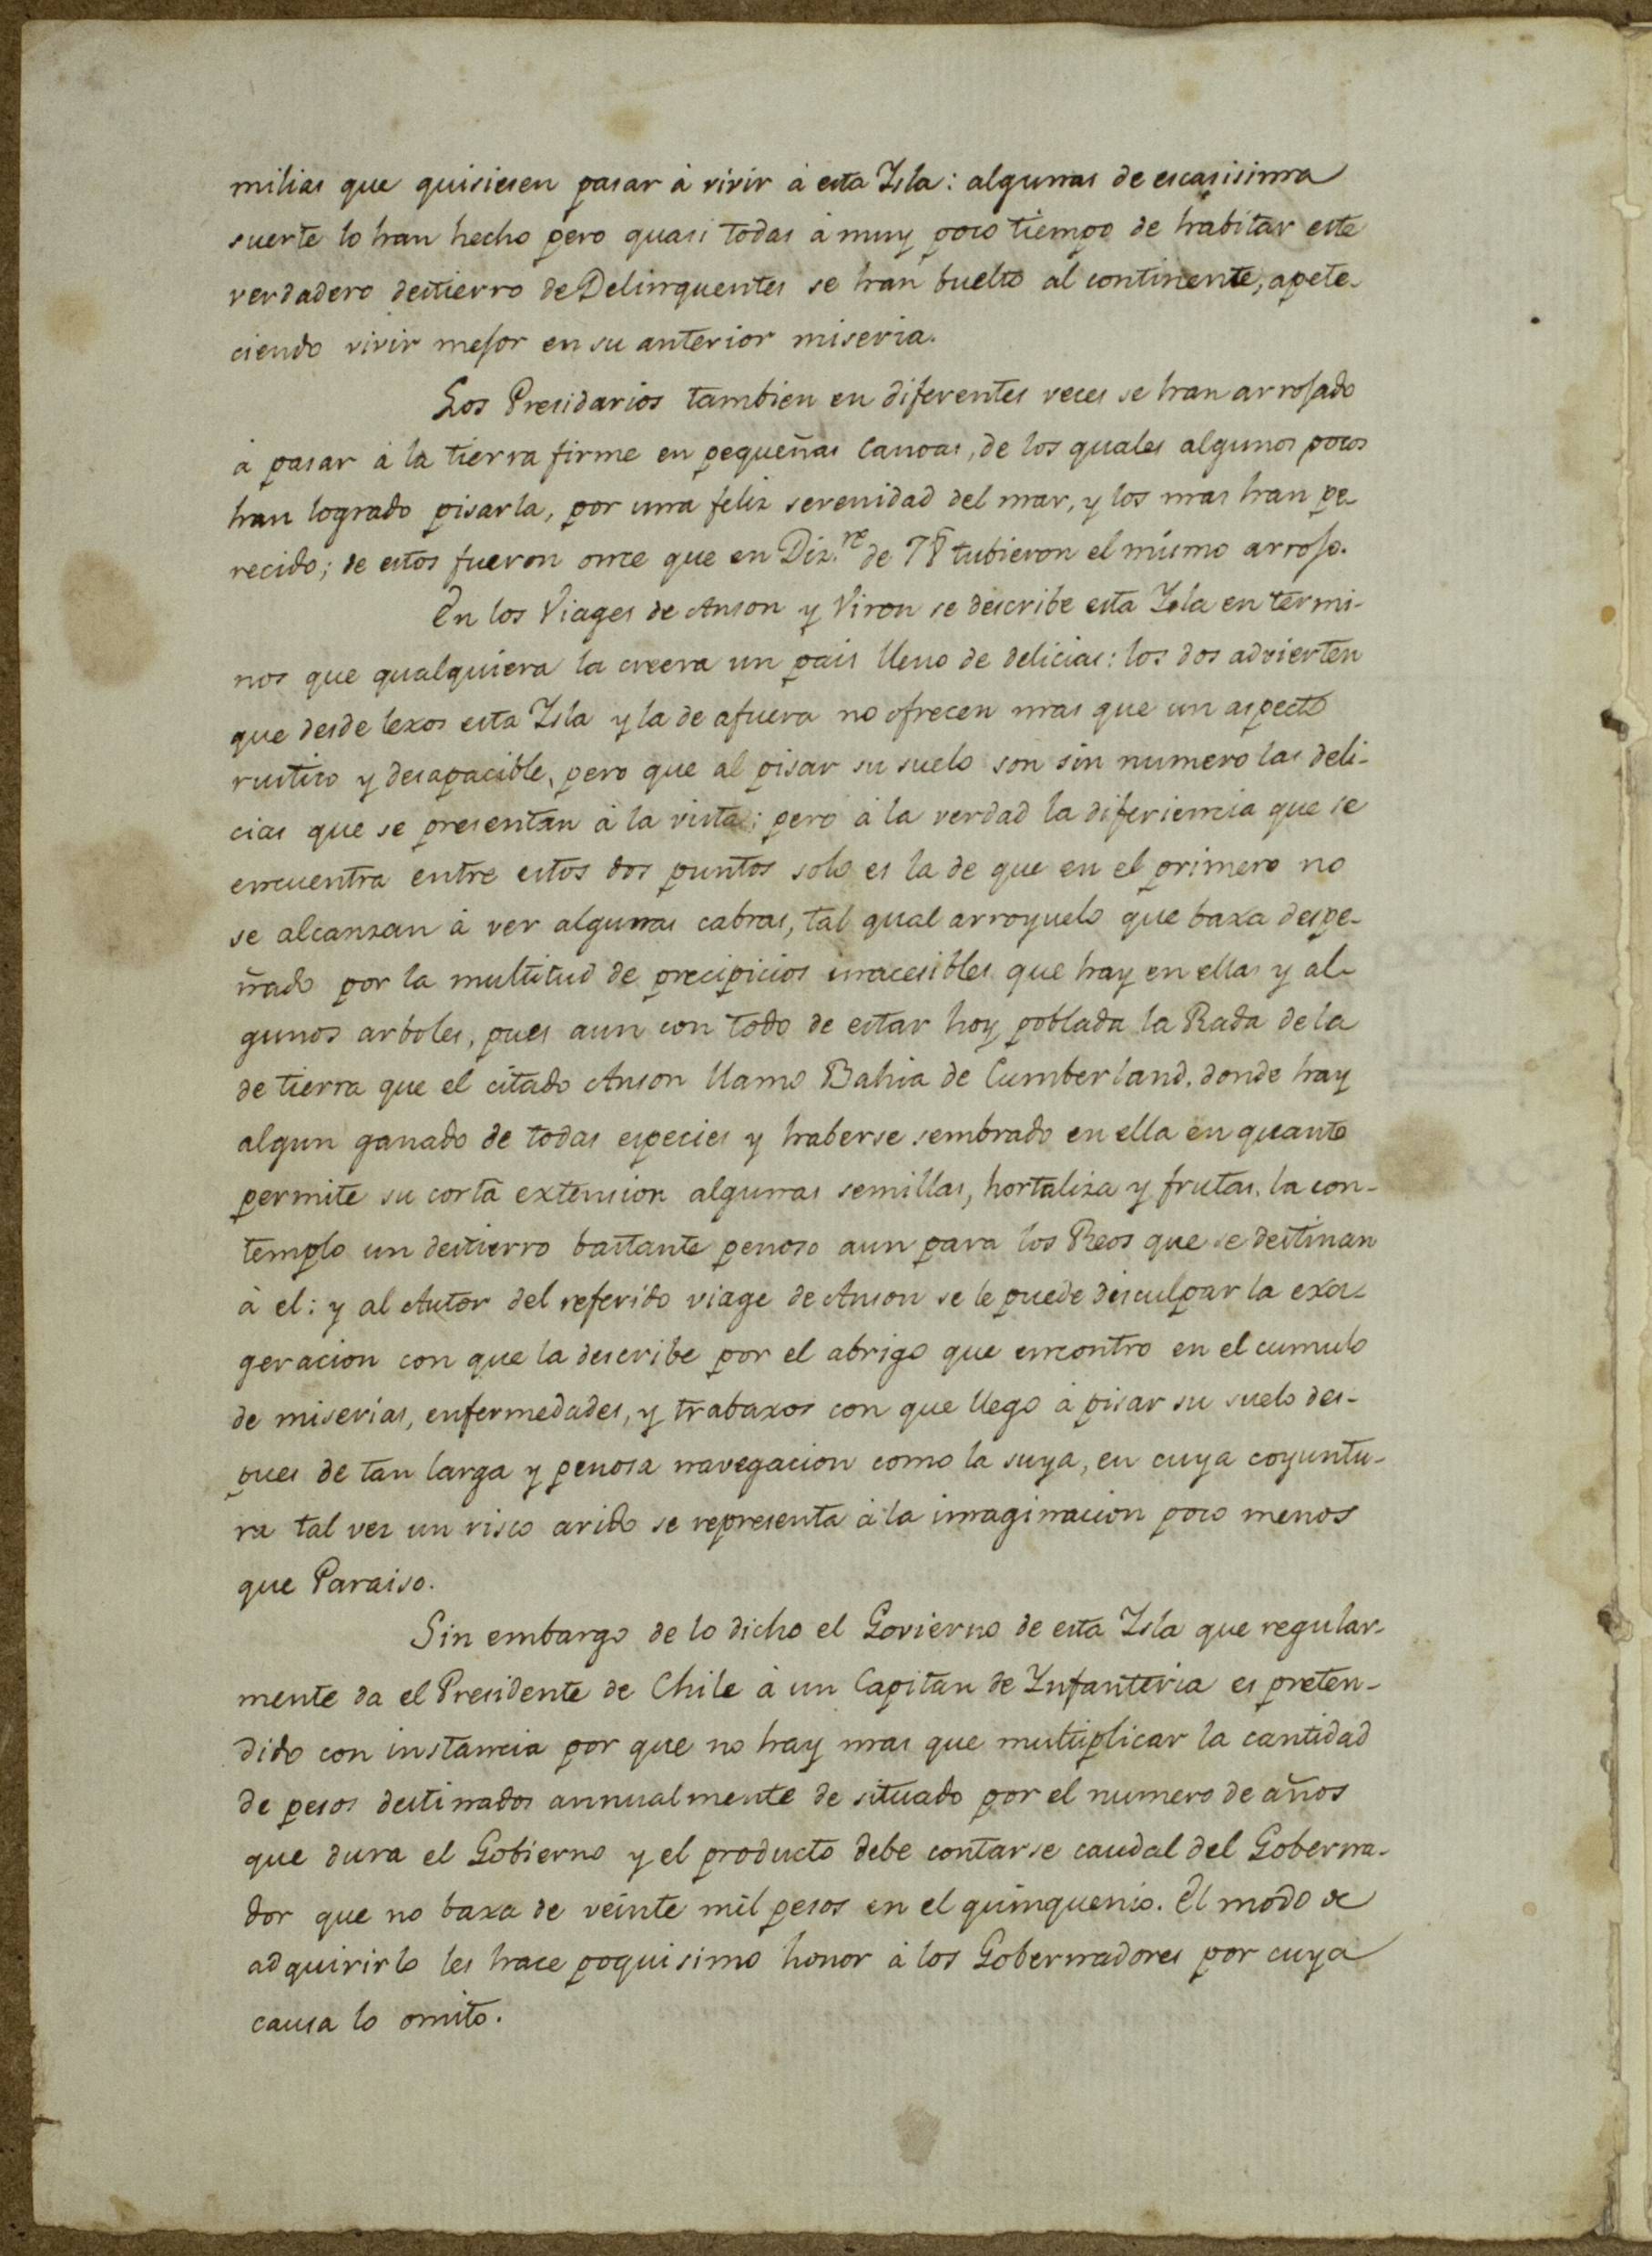 milias que quisiesen pasar à vivir à esta Isla: algunas de escasisima
suerte lo han hecho pero quasi todas à muy poco tiempo de habitar este
verdadero destierro de Delinquentes se han buelto al continente, apete-
ciendo vivir mejor en su anterior miseria.
Los Presidarios tambien en diferentes veces se han arrojado
à pasar à la tierra firme en pequeñas Canoas, de los quales algunos pocos
han logrado pisarla, por una feliz serenidad del mar, y los mas han pe-
recido; de estos fueron once que en Diz.re de 78 tubieron el mismo arrojo.
En los Viages de Anson y Viron se describe esta Isla en termi-
nos que qualquiera la creera un pais lleno de delicias: los dos advierten
que desde lexos esta Isla y la de afuera no ofrecen mas que un aspecto
rustico y desapacible, pero que al pisar su suelo son sin numero las deli-
cias que se presentan à la vista: pero à la verdad la diferiencia que se
encuentra entre estos dos puntos solo es la de que en el primero no
se alcanzan à ver algunas cabras, tal qual arroyuelo que baxa despe-
ñado por la multitud de precipicios inacesibles que hay en ellas y al-
gunos arboles, pues aun con todo de estar hoy poblada la Rada de la
de tierra que el citado Anson llamo Bahia de Cumberland, donde hay
algun ganado de todas especies y haberse sembrado en ella en quanto
permite su corta extension algunas semillas, hortaliza y frutas, la con-
templo un destierro bastante penoso aun para los Reos que se destinan
à el: y al Autor del referido viage de Anson se le puede disculpar la exa-
geracion con que la describe por el abrigo que encontro en el cumulo
de miserias, enfermedades, y trabaxos con que llego à pisar su suelo des-
pues de tan larga y penosa navegacion como la suya, en cuya coyuntu-
ra tal vez un risco arido se representa à la imaginacion poco menos
que Paraiso.
Sin embargo de lo dicho el Govierno de esta Isla que regular-
mente da el Presidente de Chile à un Capitan de Infanteria es preten-
dido con instancia por que no hay mas que multiplicar la cantidad
de pesos destinados annualmente de situado por el numero de años
que dura el Gobierno y el producto debe contarse caudal del Goberna-
dor que no baxa de veinte mil pesos en el quinquenio. El modo de
adquirirlo les hace poquisimo honor à los Gobernadores por cuya
causa lo omito.